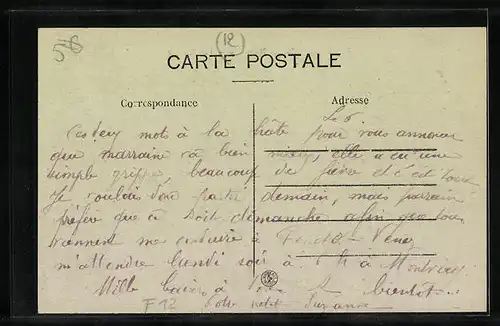 56
12
CARTE POSTALE
Correspondance
Adresse
Le 6
mots à la hâte pour vous annoncer
que marraine va bien mieux, elle a eu une
simple grippe, beaucoup de fièvre et c'est tout
Je voulais donc partir demain, mais parrain
préfère que ce soit dimanche afin que tous
viennent me conduire à
m'attendre lundi soir à 7h à
Mille baisers à tous. À bientôt.
F12 Votre petite Suzanne